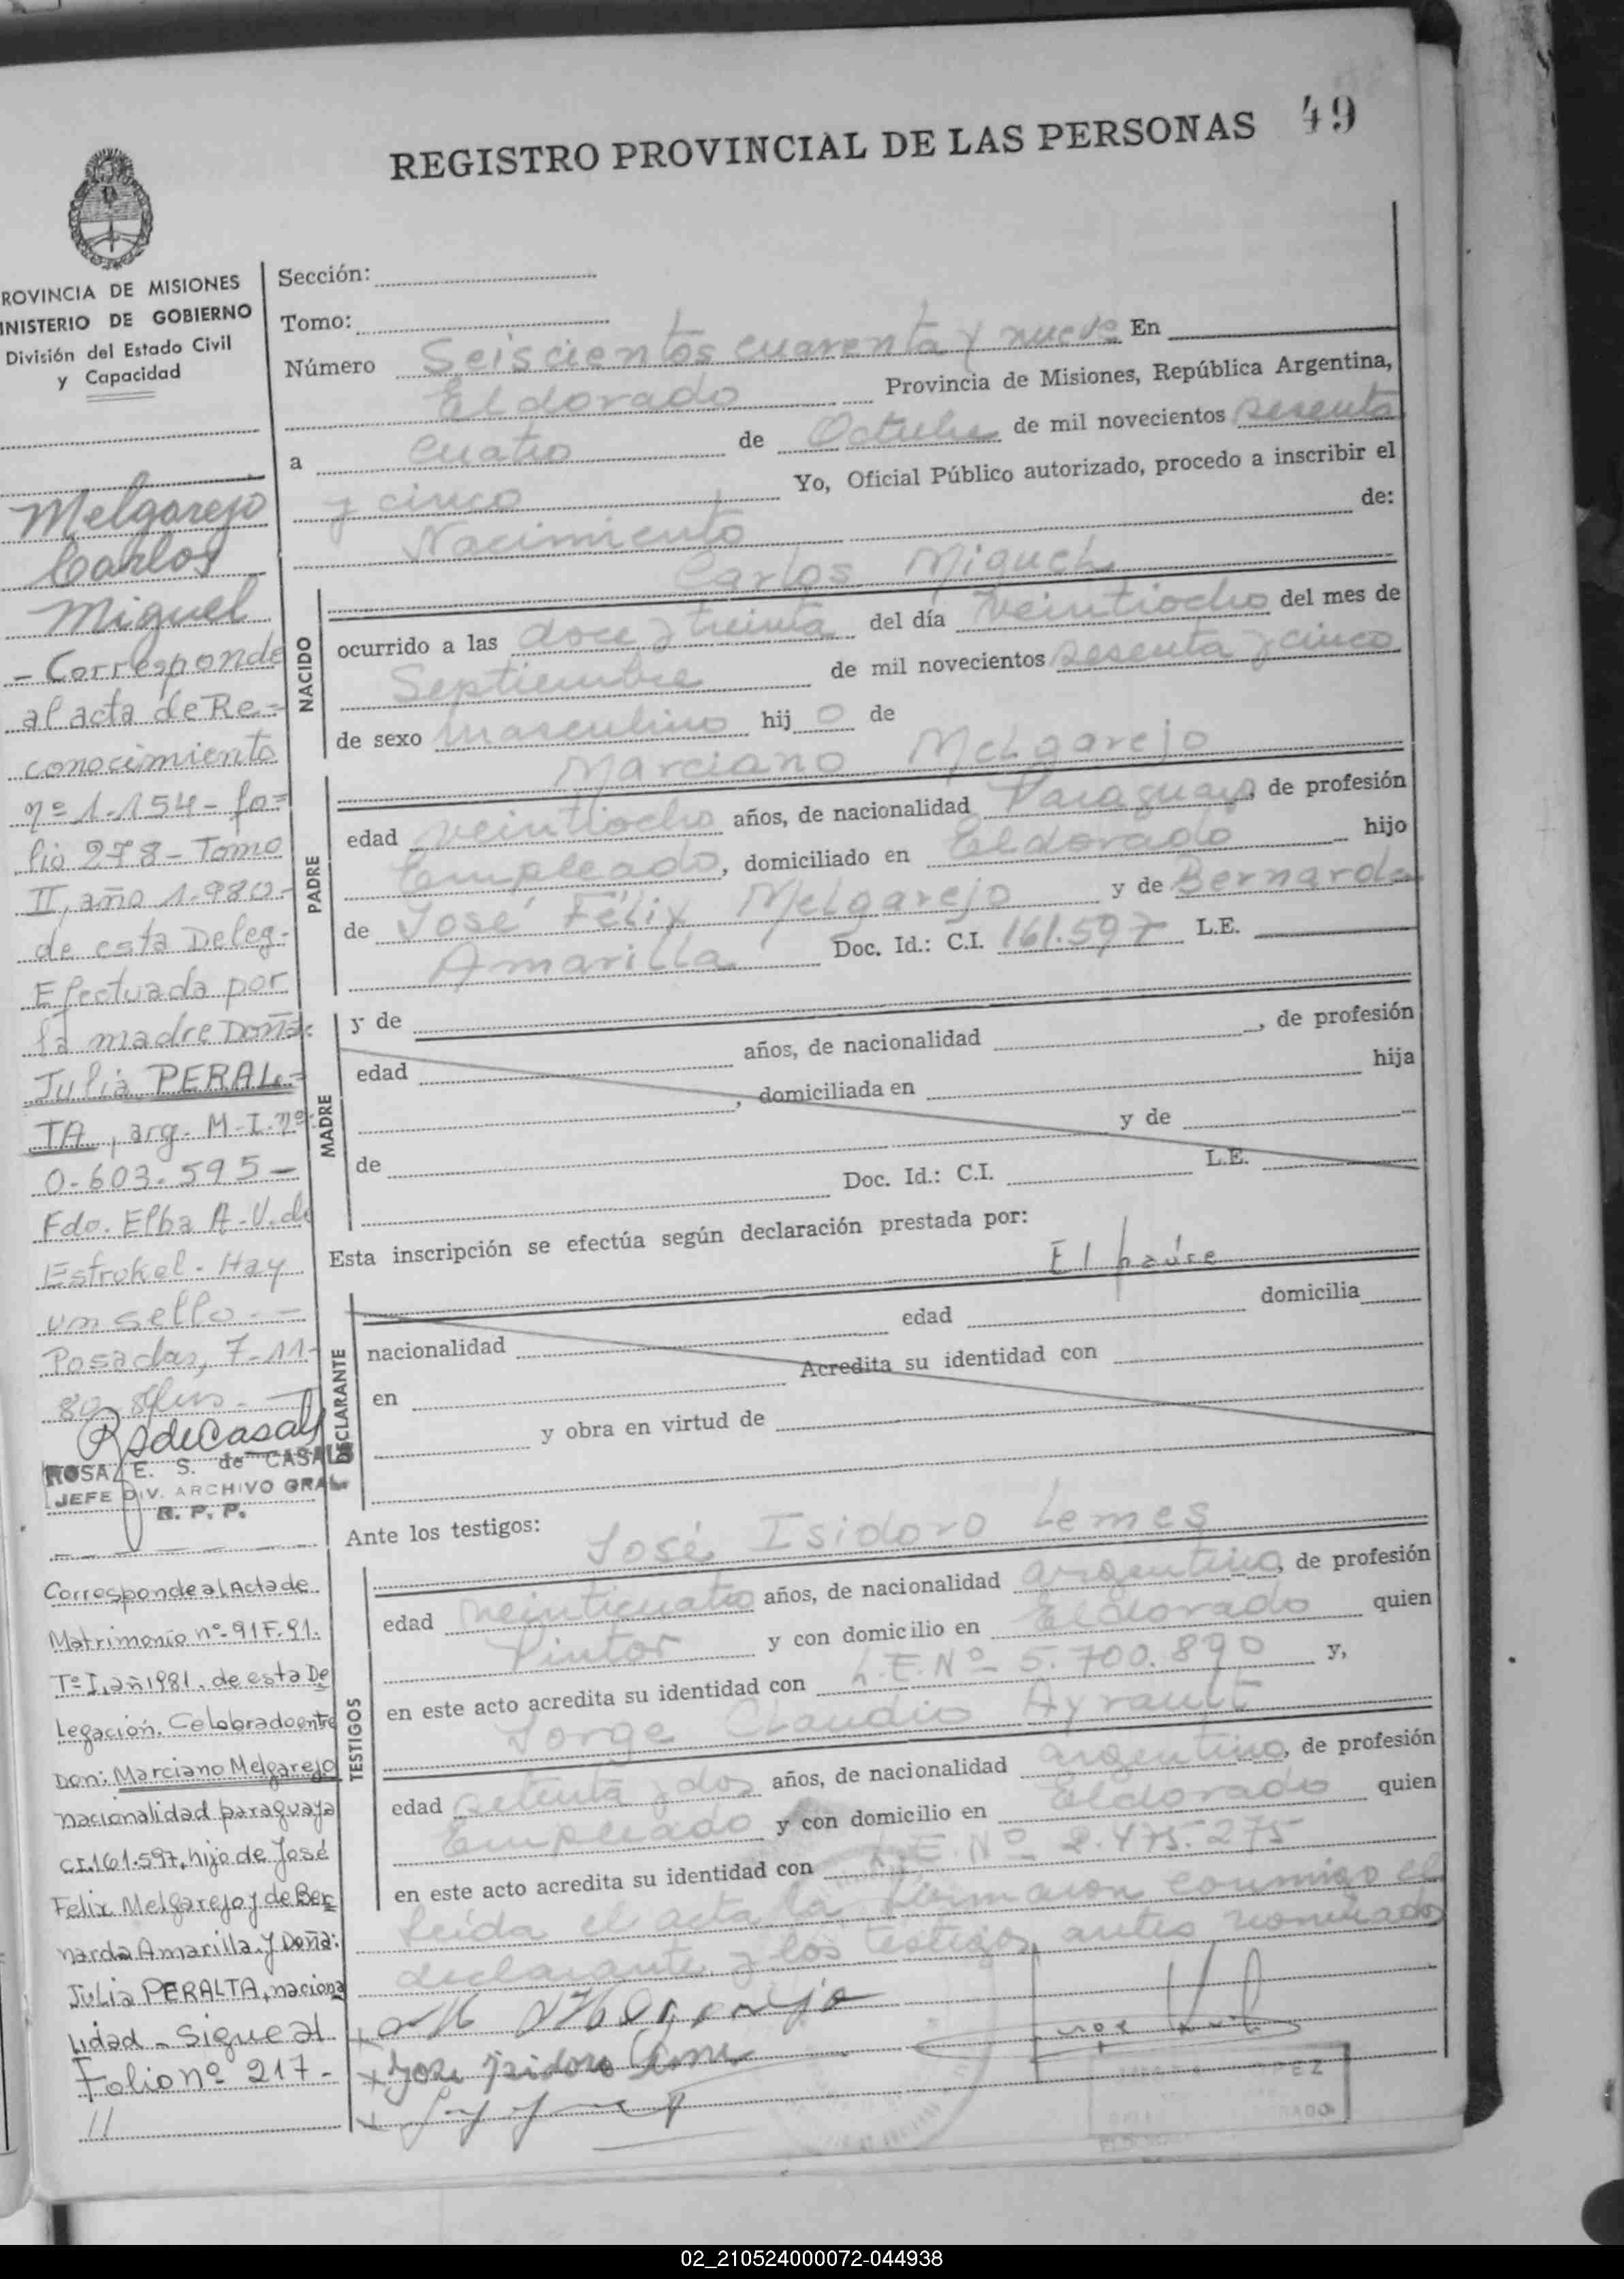 49
REGISTRO PROVINCIAL DE LAS PERSONAS
ROVINCIA DE MISIONES
INISTERIO DE GOBIERNO
División del Estado Civil
y Capacidad
Melgarejo
Carlos
Miguel
- Corresponde
al acta de Re-
conocimiento
nº 1.154 - fo=
lio 278 - Tomo
II, año 1.980.-
de esta Deleg-
Efectuada por
la madre Doña:
Julia PERAL=
TA, arg. M-I. nº:
0.603.595 -
Fdo. Elba A. V. de
Estrokel. Hay
un sello. -
Posadas, 7-11-
80
RsdeCasals
ROSA E. S. de CASALS
JEFE DIV. ARCHIVO GRAL.
R. P. P.
Corresponde al Acta de
Matrimonio nº 91 F. 91.
Tº I, añ 1981. de esta De
legación. Celebrado entre
Don: Marciano Melgarejo
nacionalidad paraguaya
CI. 161.597, hijo de José
Felix Melgarejo y de Ber
narda Amarilla. Y Doña:
Julia PERALTA, naciona
lidad - Sigue al
Folio nº 217 -
//
Sección:
Tomo:
Número Seiscientos cuarenta y nueve En
Eldorado Provincia de Misiones, República Argentina,
a cuatro de Octubre de mil novecientos sesenta
y cinco Yo, Oficial Público autorizado, procedo a inscribir el
Nacimiento de:
Carlos Miguel
NACIDO
ocurrido a las doce y treinta del día veintiocho del mes de
Septiembre de mil novecientos sesenta y cinco
de sexo masculino hij o de
Marciano Melgarejo
PADRE
edad veintiocho años, de nacionalidad Paraguayo, de profesión
Empleado, domiciliado en Eldorado hijo
de José Félix Melgarejo y de Bernarda
Amarilla Doc. Id.: C.I. 161.597 L.E.
MADRE
y de
edad años, de nacionalidad , de profesión
, domiciliada en hija
de y de
Doc. Id.: C.I. L.E.
Esta inscripción se efectúa según declaración prestada por:
El padre
DECLARANTE
nacionalidad edad domicilia
en Acredita su identidad con
y obra en virtud de
Ante los testigos:
José Isidoro Lemes
TESTIGOS
edad veinticuatro años, de nacionalidad argentino, de profesión
Pintor y con domicilio en Eldorado quien
en este acto acredita su identidad con L.E. Nº 5.700.890 y,
Jorge Claudio Ayrault
edad setenta y dos años, de nacionalidad argentino, de profesión
Empleado y con domicilio en Eldorado quien
en este acto acredita su identidad con L.E. Nº 2.475.275
Leída el acta la firmaron conmigo el
declarante y los testigos antes nombrados
Jose Isidoro Leme
02_210524000072-044938